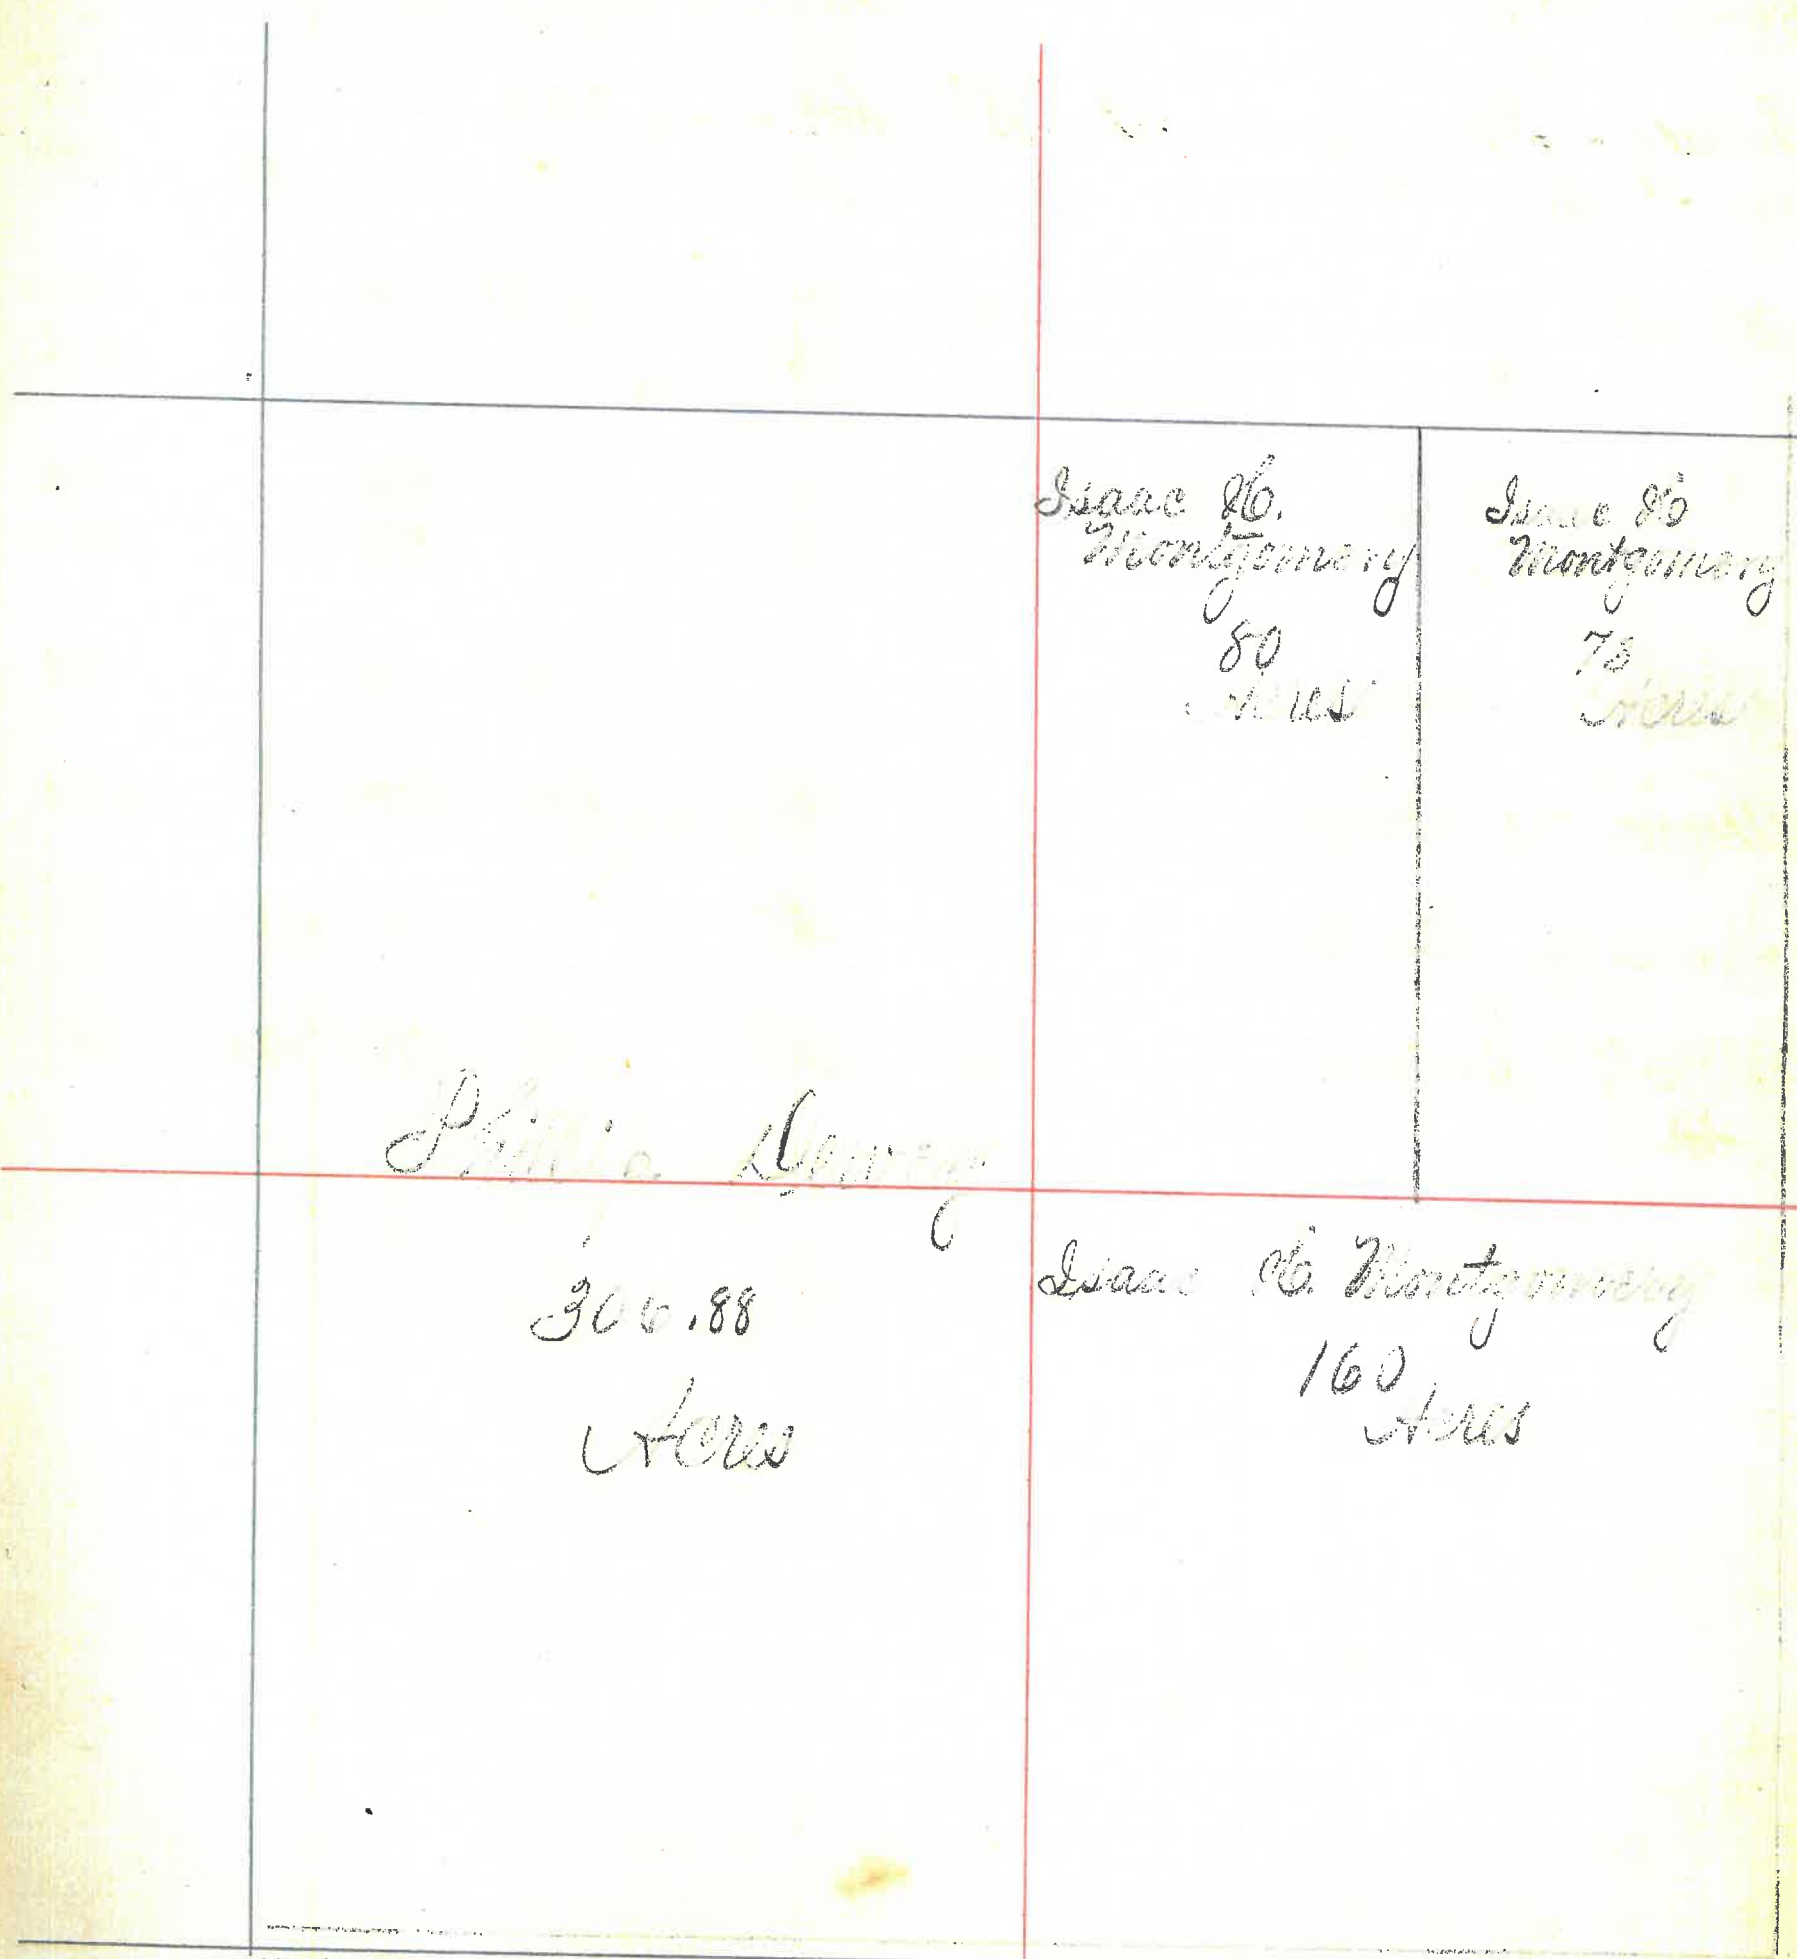 Isaac H.
Montgomery
80
Acres
Isaac H
Montgomery
Acres
306.88
Acres
Isaac H. Montgomery
160
Acres